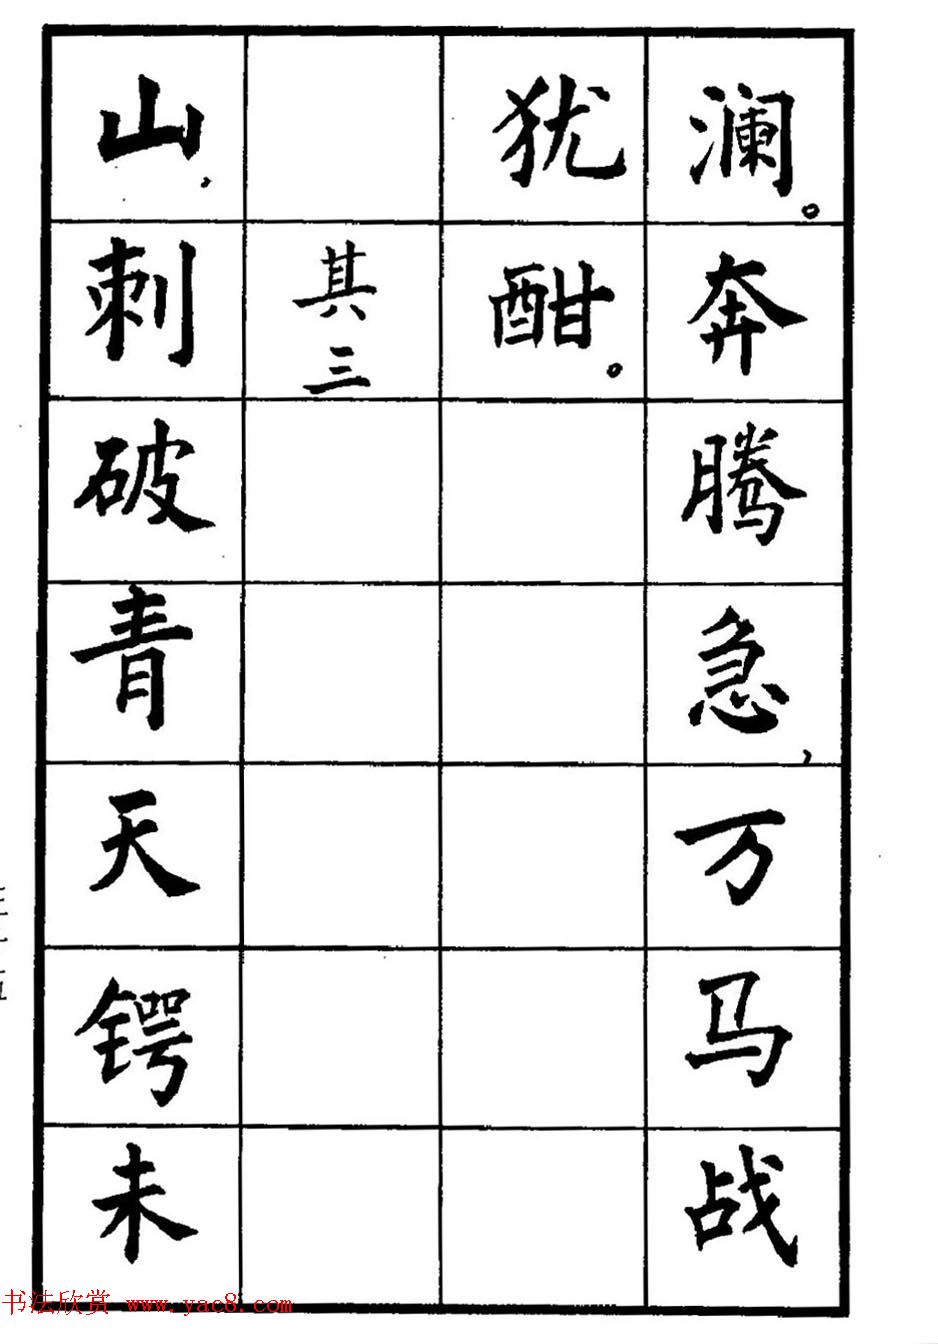 澜。奔腾急，万马战
犹酣。
其三
山，刺破青天锷未
书法欣赏 www.yac8.com